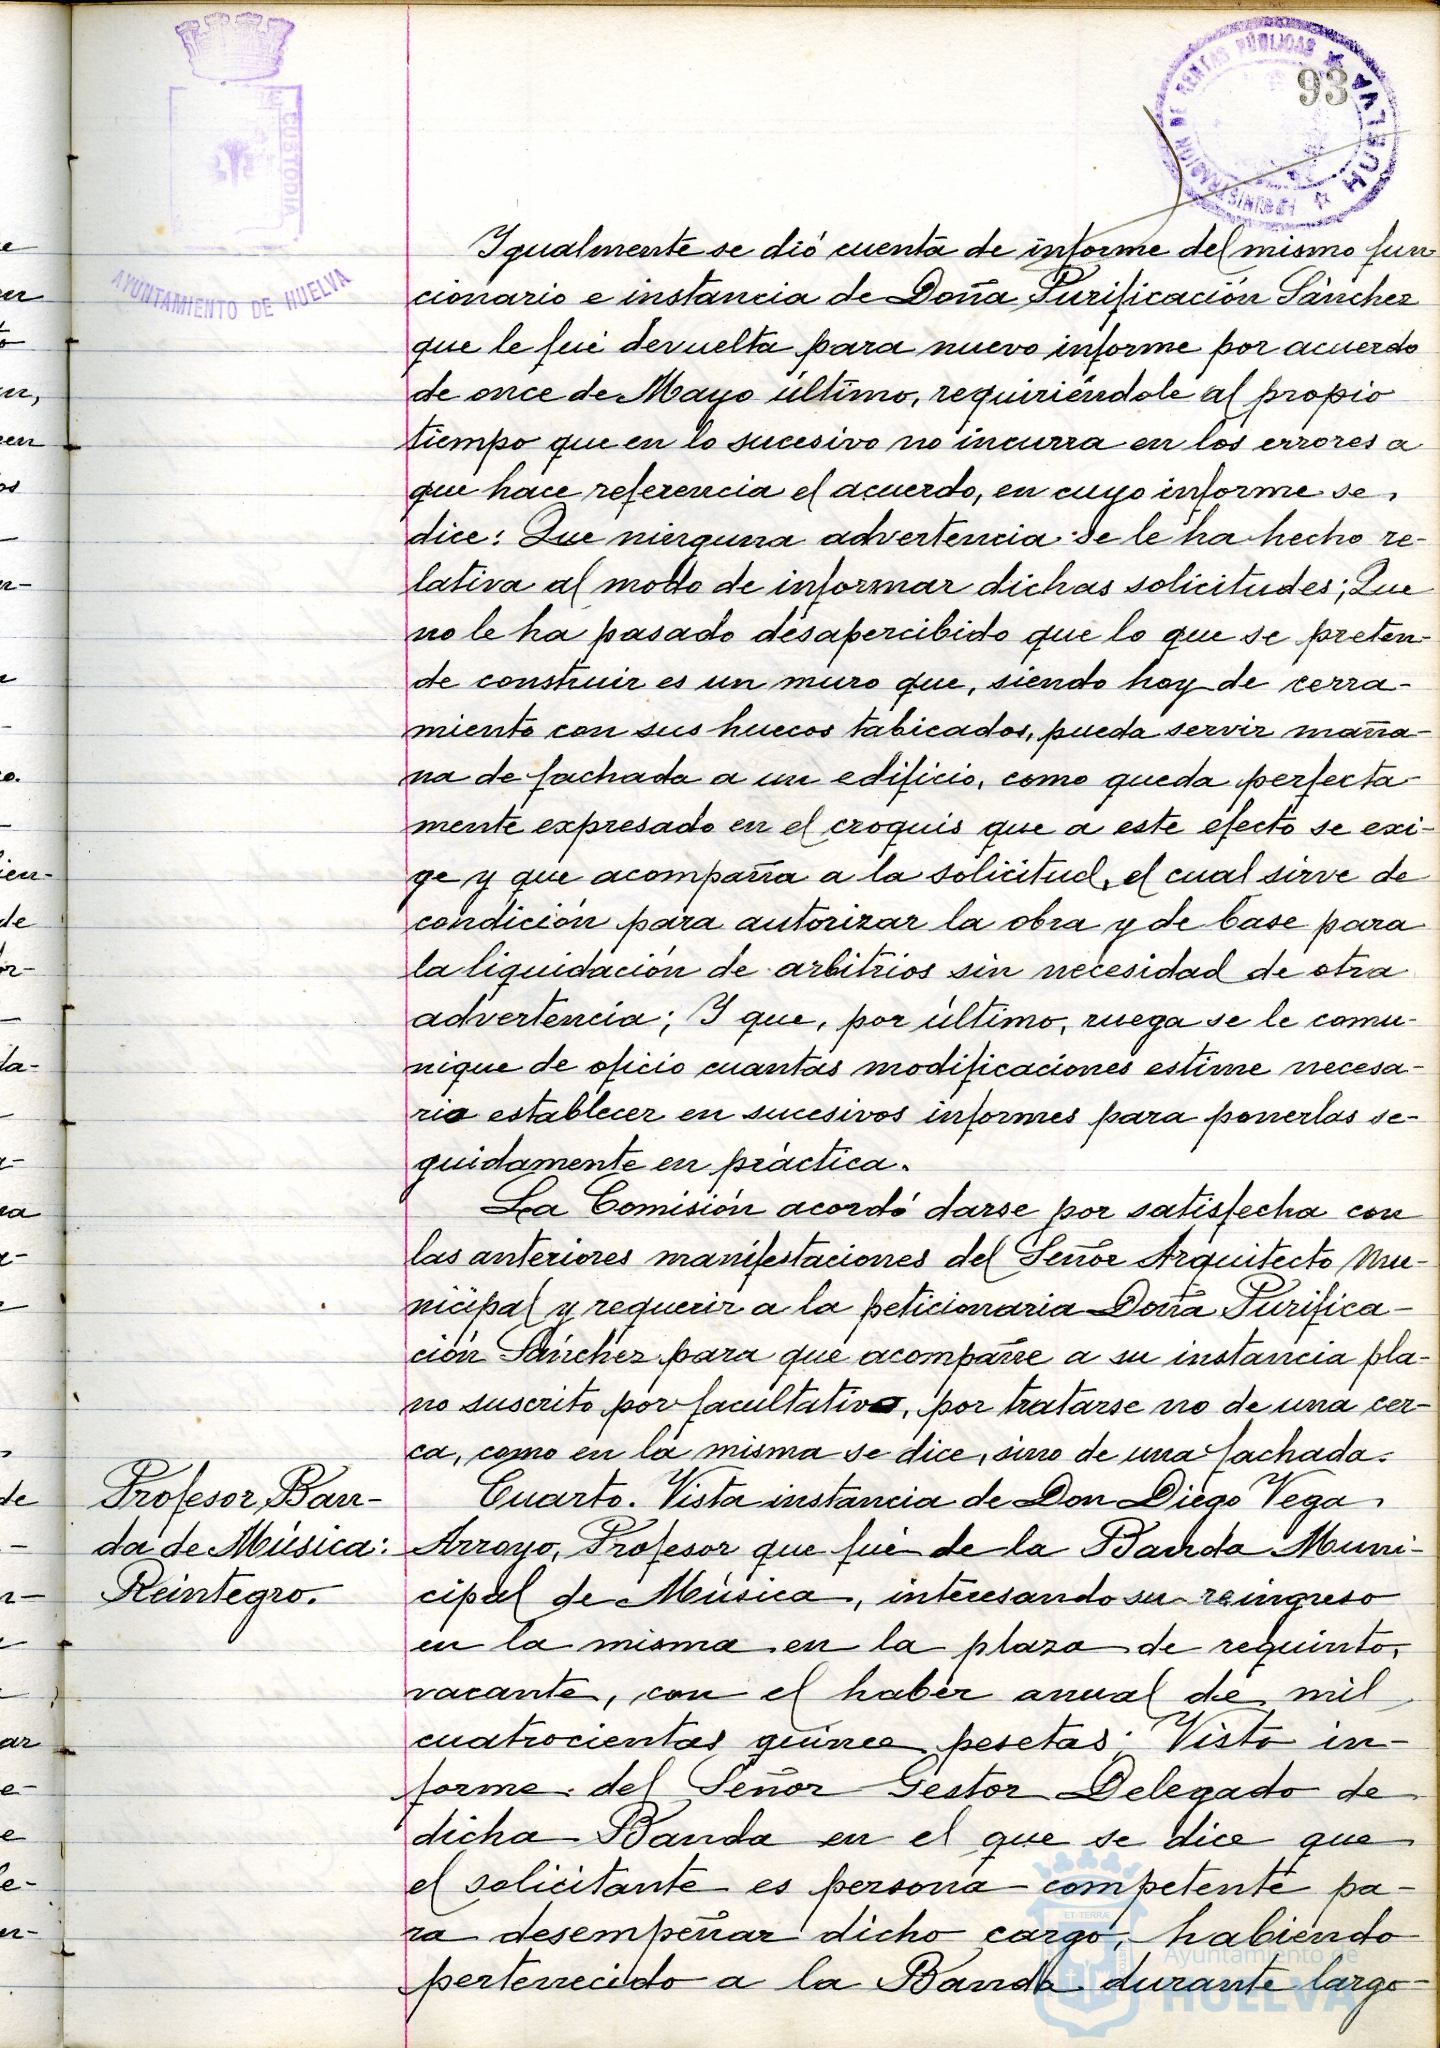 93
ADMINISTRACION DE RENTAS PÚBLICAS
HUELVA
CUSTODIA
AYUNTAMIENTO DE HUELVA
Igualmente se dió cuenta de informe del mismo fun-
cionario e instancia de Doña Purificación Sánchez
que le fué devuelta para nuevo informe por acuerdo
de once de Mayo último, requiriéndole al propio
tiempo que en lo sucesivo no incurra en los errores a
que hace referencia el acuerdo, en cuyo informe se
dice: Que ninguna advertencia se le ha hecho re-
lativa al modo de informar dichas solicitudes; Que
no le ha pasado desapercibido que lo que se preten-
de construir es un muro que, siendo hoy de cerra-
miento con sus huecos tabicados, pueda servir maña-
na de fachada a un edificio, como queda perfecta-
mente expresado en el croquis que a este efecto se exi-
ge y que acompaña a la solicitud, el cual sirve de
condición para autorizar la obra y de base para
la liquidación de arbitrios sin necesidad de otra
advertencia; Y que, por último, ruega se le comu-
nique de oficio cuantas modificaciones estime necesa-
rio establecer en sucesivos informes para ponerlas se-
guidamente en práctica.
La Comisión acordó darse por satisfecha con
las anteriores manifestaciones del Señor Arquitecto Mu-
nicipal y requerir a la peticionaria Doña Purifica-
ción Sánchez para que acompañe a su instancia pla-
no suscrito por facultativo, por tratarse no de una cer-
ca, como en la misma se dice, sino de una fachada.
Profesor Ban-
da de Música:
Reintegro.
Cuarto. Vista instancia de Don Diego Vega
Arroyo, Profesor que fué de la Banda Muni-
cipal de Música, interesando su reingreso
en la misma en la plaza de requinto,
vacante, con el haber anual de mil
cuatrocientas quince pesetas; Visto in-
forme del Señor Gestor Delegado de
dicha Banda en el que se dice que
el solicitante es persona competente pa-
ra desempeñar dicho cargo, habiendo
pertenecido a la Banda durante largo
Ayuntamiento de
HUELVA